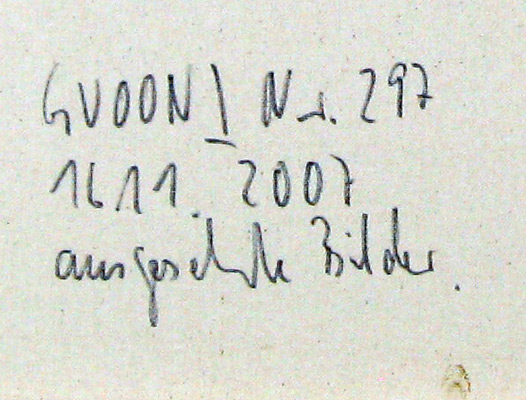 GVOON | Nr. 297
16.11.2007
Bilder.